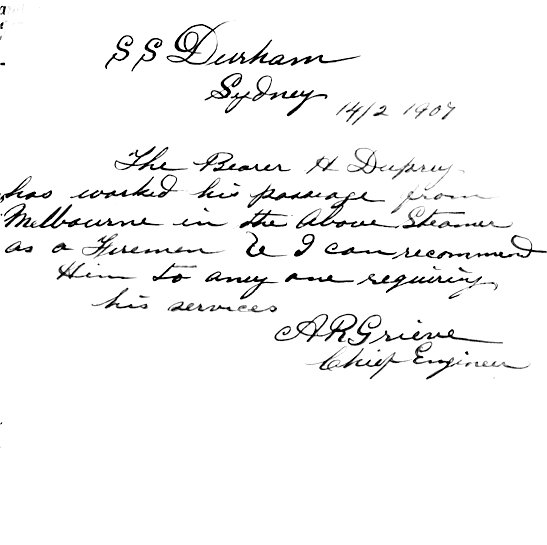 SS Durham
Sydney
14/2 1907
The Bearer H Duprey
has worked his passage from
Melbourne in the Above Steamer
as a Firemen & I can recommend
Him to aney one requiring
his services
A R Grieve
Chief Engineer